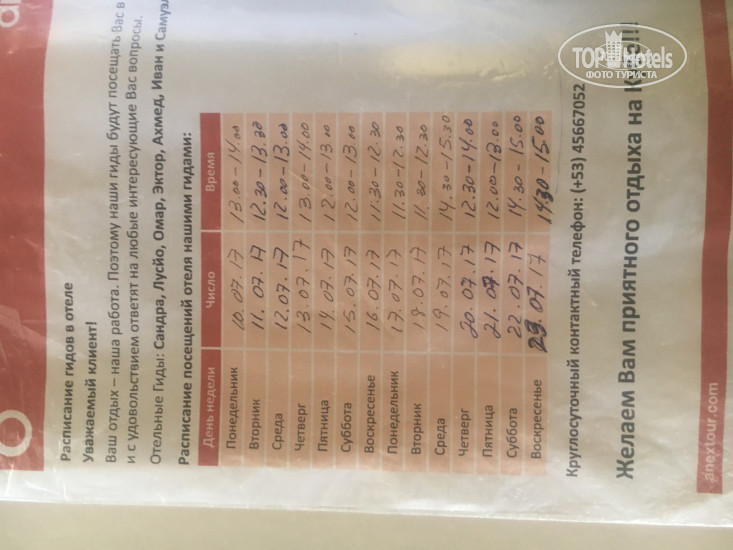 Расписание гидов в отеле
Уважаемый клиент!
Ваш отдых – наша работа. Поэтому наши гиды будут посещать Вас в
и с удовольствием ответят на любые интересующие Вас вопросы.
Отельные Гиды: Сандра, Лусйо, Омар, Эктор, Ахмед, Иван и Самуэл
Расписание посещений отеля нашими гидами:
День недели Число Время
Понедельник 10.07.17 13.00-14.00
Вторник 11.07.17 12.30-13.30
Среда 12.07.17 12.00-13.00
Четверг 13.07.17 13.00-14.00
Пятница 14.07.17 12.00-13.00
Суббота 15.07.17 12.00-13.00
Воскресенье 16.07.17 11.30-12.30
Понедельник 17.07.17 11.30-12.30
Вторник 18.07.17 11.30-12.30
Среда 19.07.17 14.30-15.30
Четверг 20.07.17 12.30-14.00
Пятница 21.07.17 12.00-13.00
Суббота 22.07.17 14.30-15.00
Воскресенье 23.07.17 14.30-15.00
Круглосуточный контактный телефон: (+53) 45667052
Желаем Вам приятного отдыха на !!!
anextour.com
TOP Hotels
ФОТО ТУРИСТА